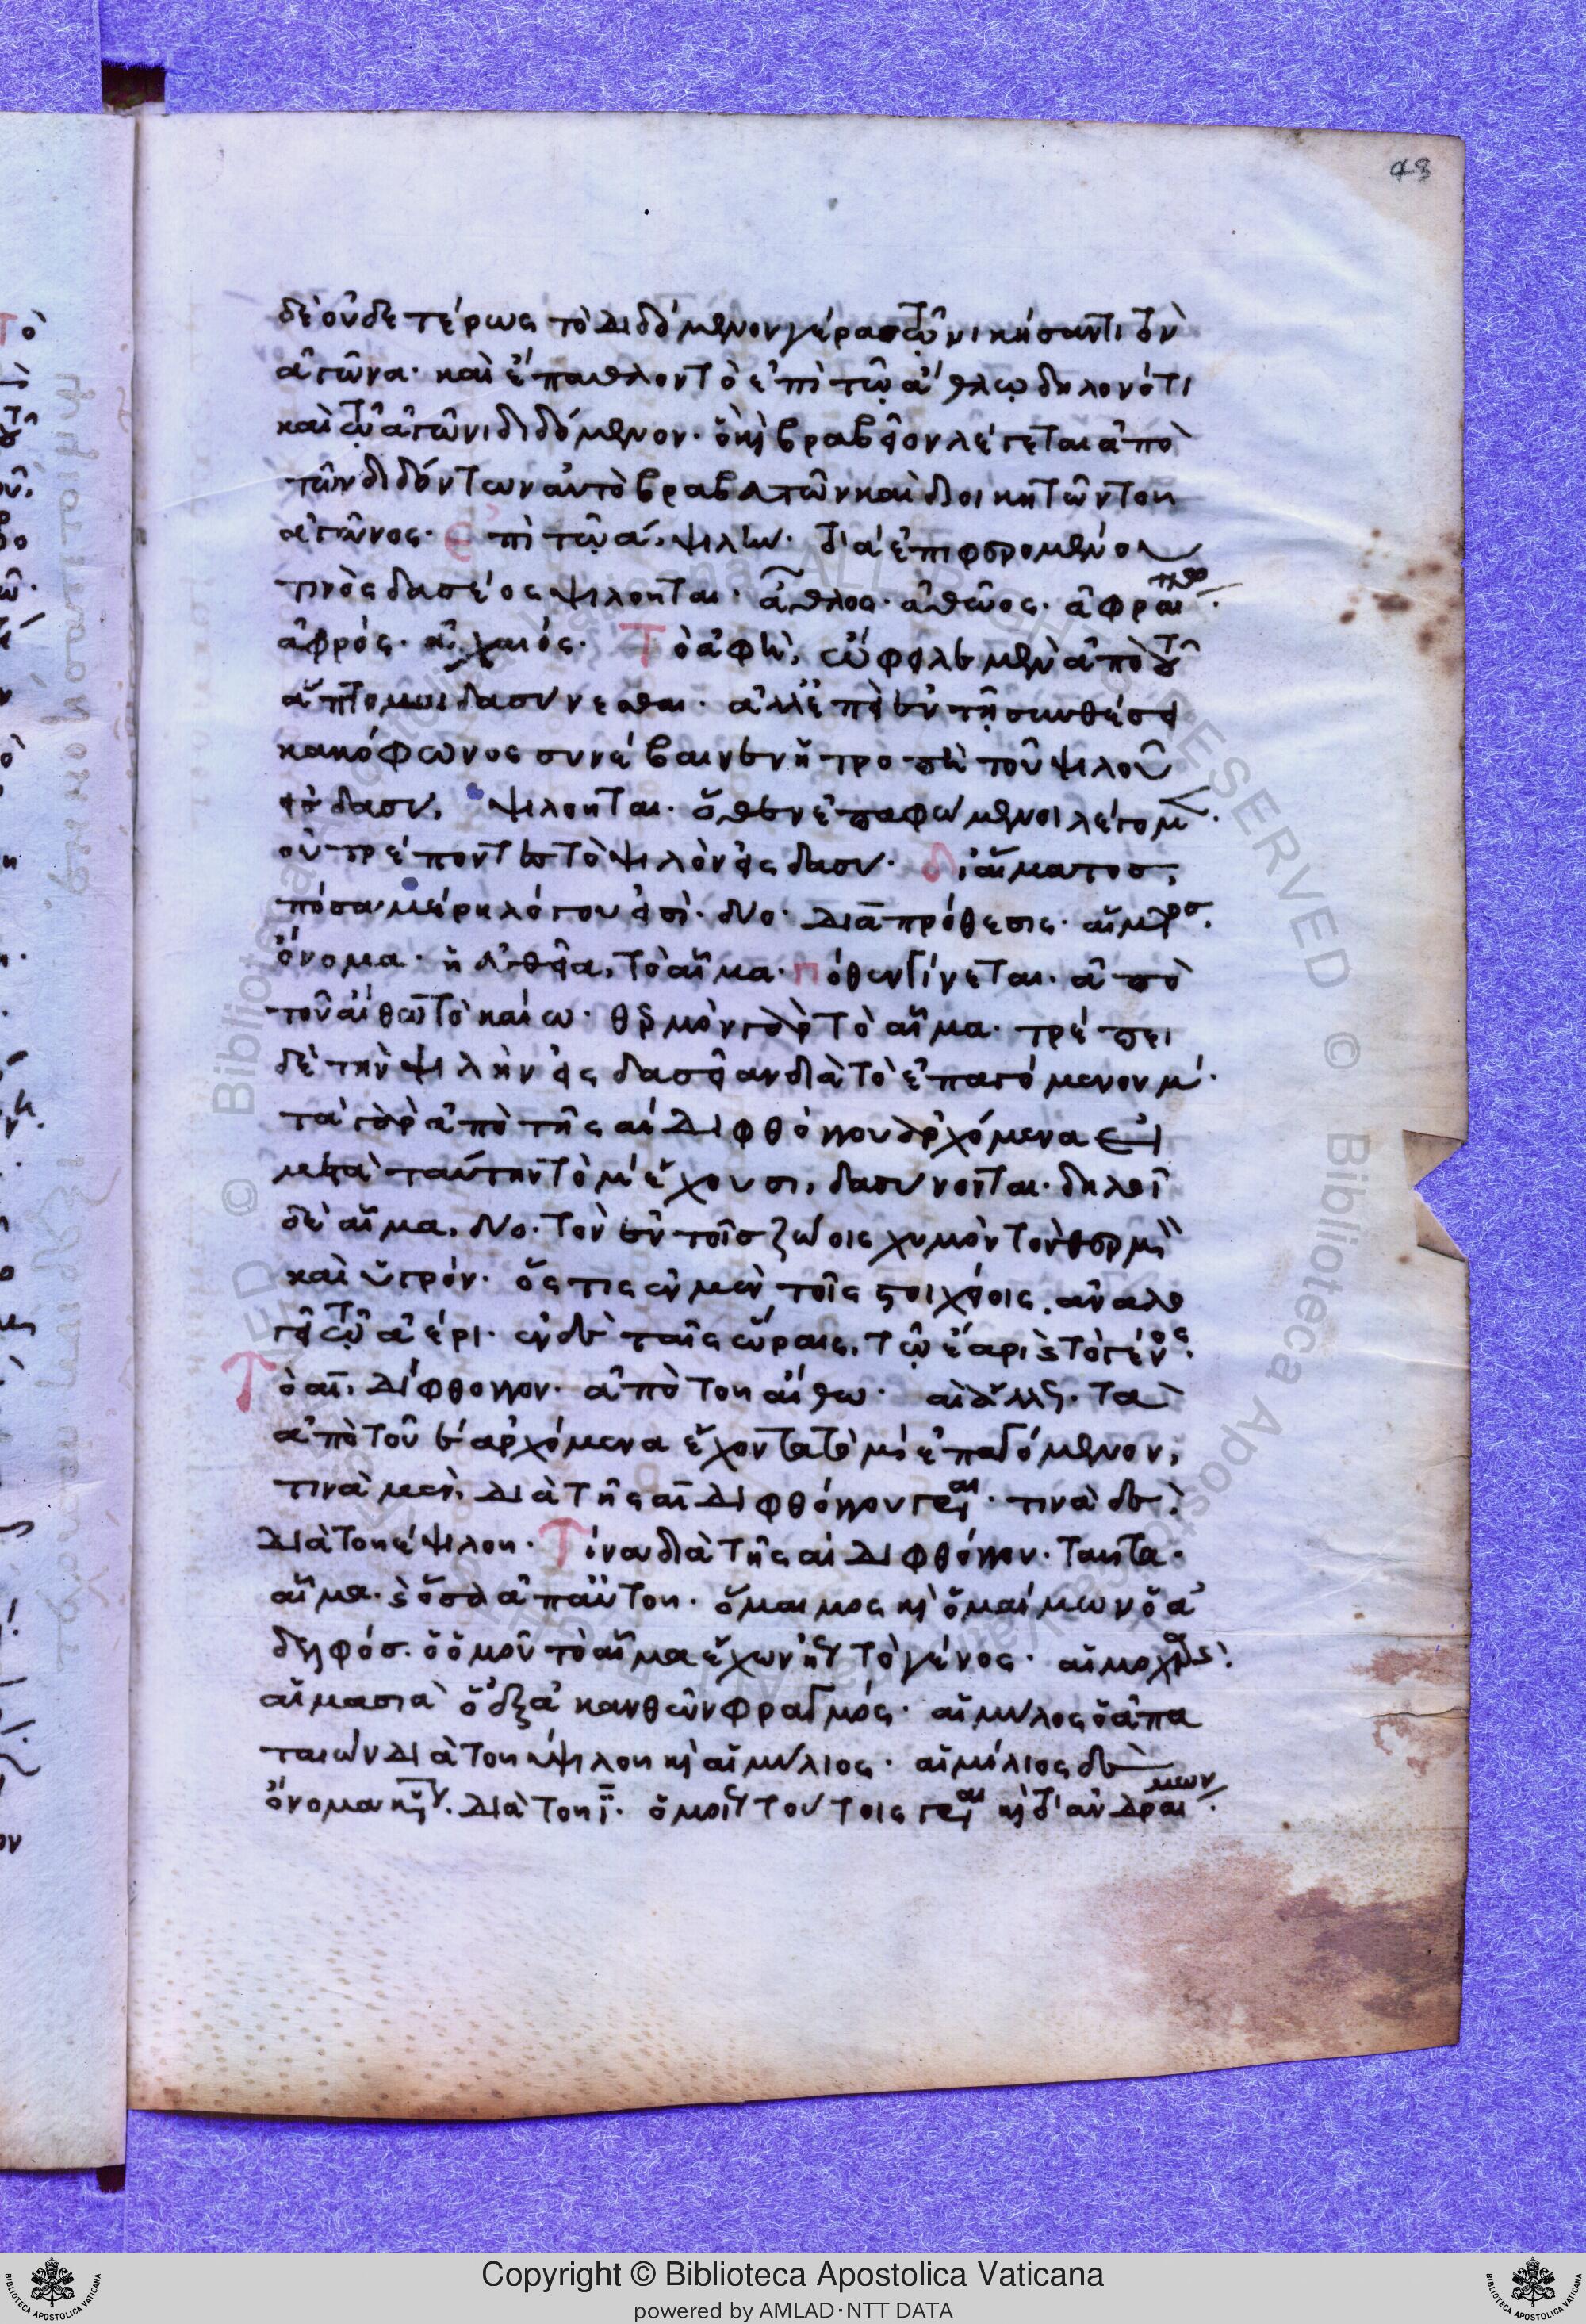 48
δὲ οὐδετέρως τὸ διδόμενον γέρας τῷ νικήσαντι τὸν
ἀγῶνα· καὶ ἔπαθλον τὸ ἐπὶ τῷ ἄθλῳ δηλονότι
καὶ τῷ ἀγῶνι διδόμενον· ὃ κὶ βραβεῖον λέγεται ἀπὸ
τῶν διδόντων αὐτὸ βραβευτῶν καὶ διοικητῶν τοῦ
ἀγῶνος· ἐπὶ τῷ ά, ψιλῶν· τὸ α ἐπιφερομένου
τινὸς δασέος ψιλοῦται· ἆθλος· ἀθῶος· ἀφραι
ἀφρός· ἀχαιός· Τὸ ἁφὴ, ὤφειλε μὲν ἀπὸ τοῦ
ἅπτομαι δασύνεσθαι· ἀλλ' ἐπεὶ ἐν τῇ συνθέσει
κακόφωνος συνέβαινεν ἡ τροπὴ τοῦ ψιλοῦ
εἰς δασύ, ψιλοῦται· ὅθεν ἐπαφώμενοι λέγομεν·
οὐ τρέποντες τὸ ψιλὸν εἰς δασύ· δι αἵματος,
πόσα μέρη λόγου εἰσί· δύο· διὰ πρόθεσις· αἵματος
ὄνομα· ἡ εὐθεῖα, τὸ αἷμα· πόθεν γίνεται· ἀπὸ
τοῦ αἴθω τὸ καίω· θερμὸν γὰρ τὸ αἷμα· τρέπει
δὲ τὴν ψιλὴν εἰς δασεῖαν διὰ τὸ ἐπαγόμενον μ·
τὰ γὰρ ἀπὸ τῆς αι διφθόγγου ἀρχόμενα εἰ
μετὰ ταύτην τὸ μ ἔχουσι, δασύνονται· δηλοῖ
δὲ αἷμα, δύο· τὸν ἐν τοῖς ζώοις χυμὸν τὸν θερμὸν
καὶ ὑγρόν· ὅς τις ἐν μὲν τοῖς στοιχείοις, ἀναλο
γεῖ τῷ ἀέρι· ἐν δὲ ταῖς ὥραις, τῷ ἔαρι ϛ τὸ γένος·
Τὸ αι, δίφθογγον· ἀπὸ τοῦ αἴθω· τὰ
ἀπὸ τοῦ ε ἀρχόμενα ἔχοντα τὸ μ ἐπαγόμενον,
τινὰ μὲν, διὰ τῆς αι διφθόγγου γράφεται· τινὰ δὲ,
διὰ τοῦ ἐψιλοῦ· Τίνα διὰ τῆς αι διφθόγγου· ταῦτα·
αἷμα· ϛ ὅσα ἀπ' αὐτοῦ· ὅμαιμος κὶ ὁμαίμων ὁ ἀ
δελφός· ὁ ὁμοῦ τὸ αἷμα ἔχων ἤγουν τὸ γένος·
αἱμασιὰ ὁ ἐξ ἀκανθῶν φραγμός· αἱμύλος ὁ ἀπα
ταιών διὰ τοῦ ὑψιλοῦ κὶ αἱμύλιος· αἱμίλιος δὲ
ὄνομα κύριον· διὰ τοῦ ϊ· ὁμοίως τούτοις γράφεται κὶ τὸ ἀνδραιμων·
Copyright © Biblioteca Apostolica Vaticana
powered by AMLAD·NTT DATA